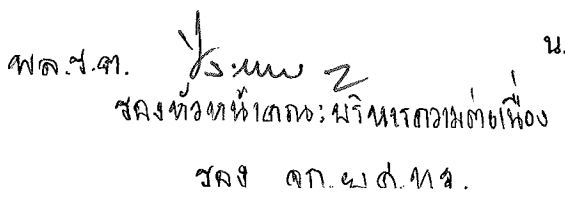 พล.ร.ต. น.
รองหัวหน้าคณะบริหารความต่อเนื่อง
รอง จก.พธ.ทร.